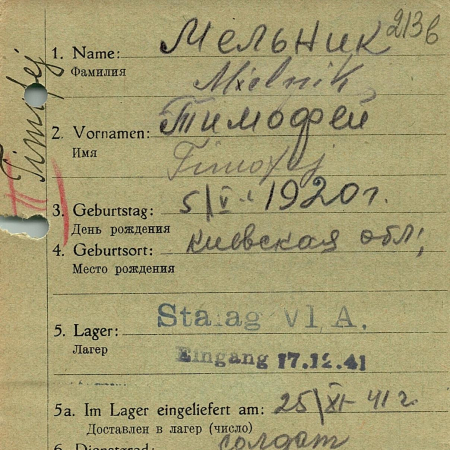 213 в
Timofej
1. Name: Мельник
Фамилия
Mielnik
2. Vornamen: Тимофей
Имя
Timofej
3. Geburtstag: 5/V. 1920 г.
День рождения
4. Geburtsort: Киевская обл,
Место рождения
5. Lager: Stalag VI A.
Лагерь
Eingang 17.12.41
5a. Im Lager eingeliefert am: 25/XI 41 г.
Доставлен в лагерь (число)
6. Dienstgrad: солдат